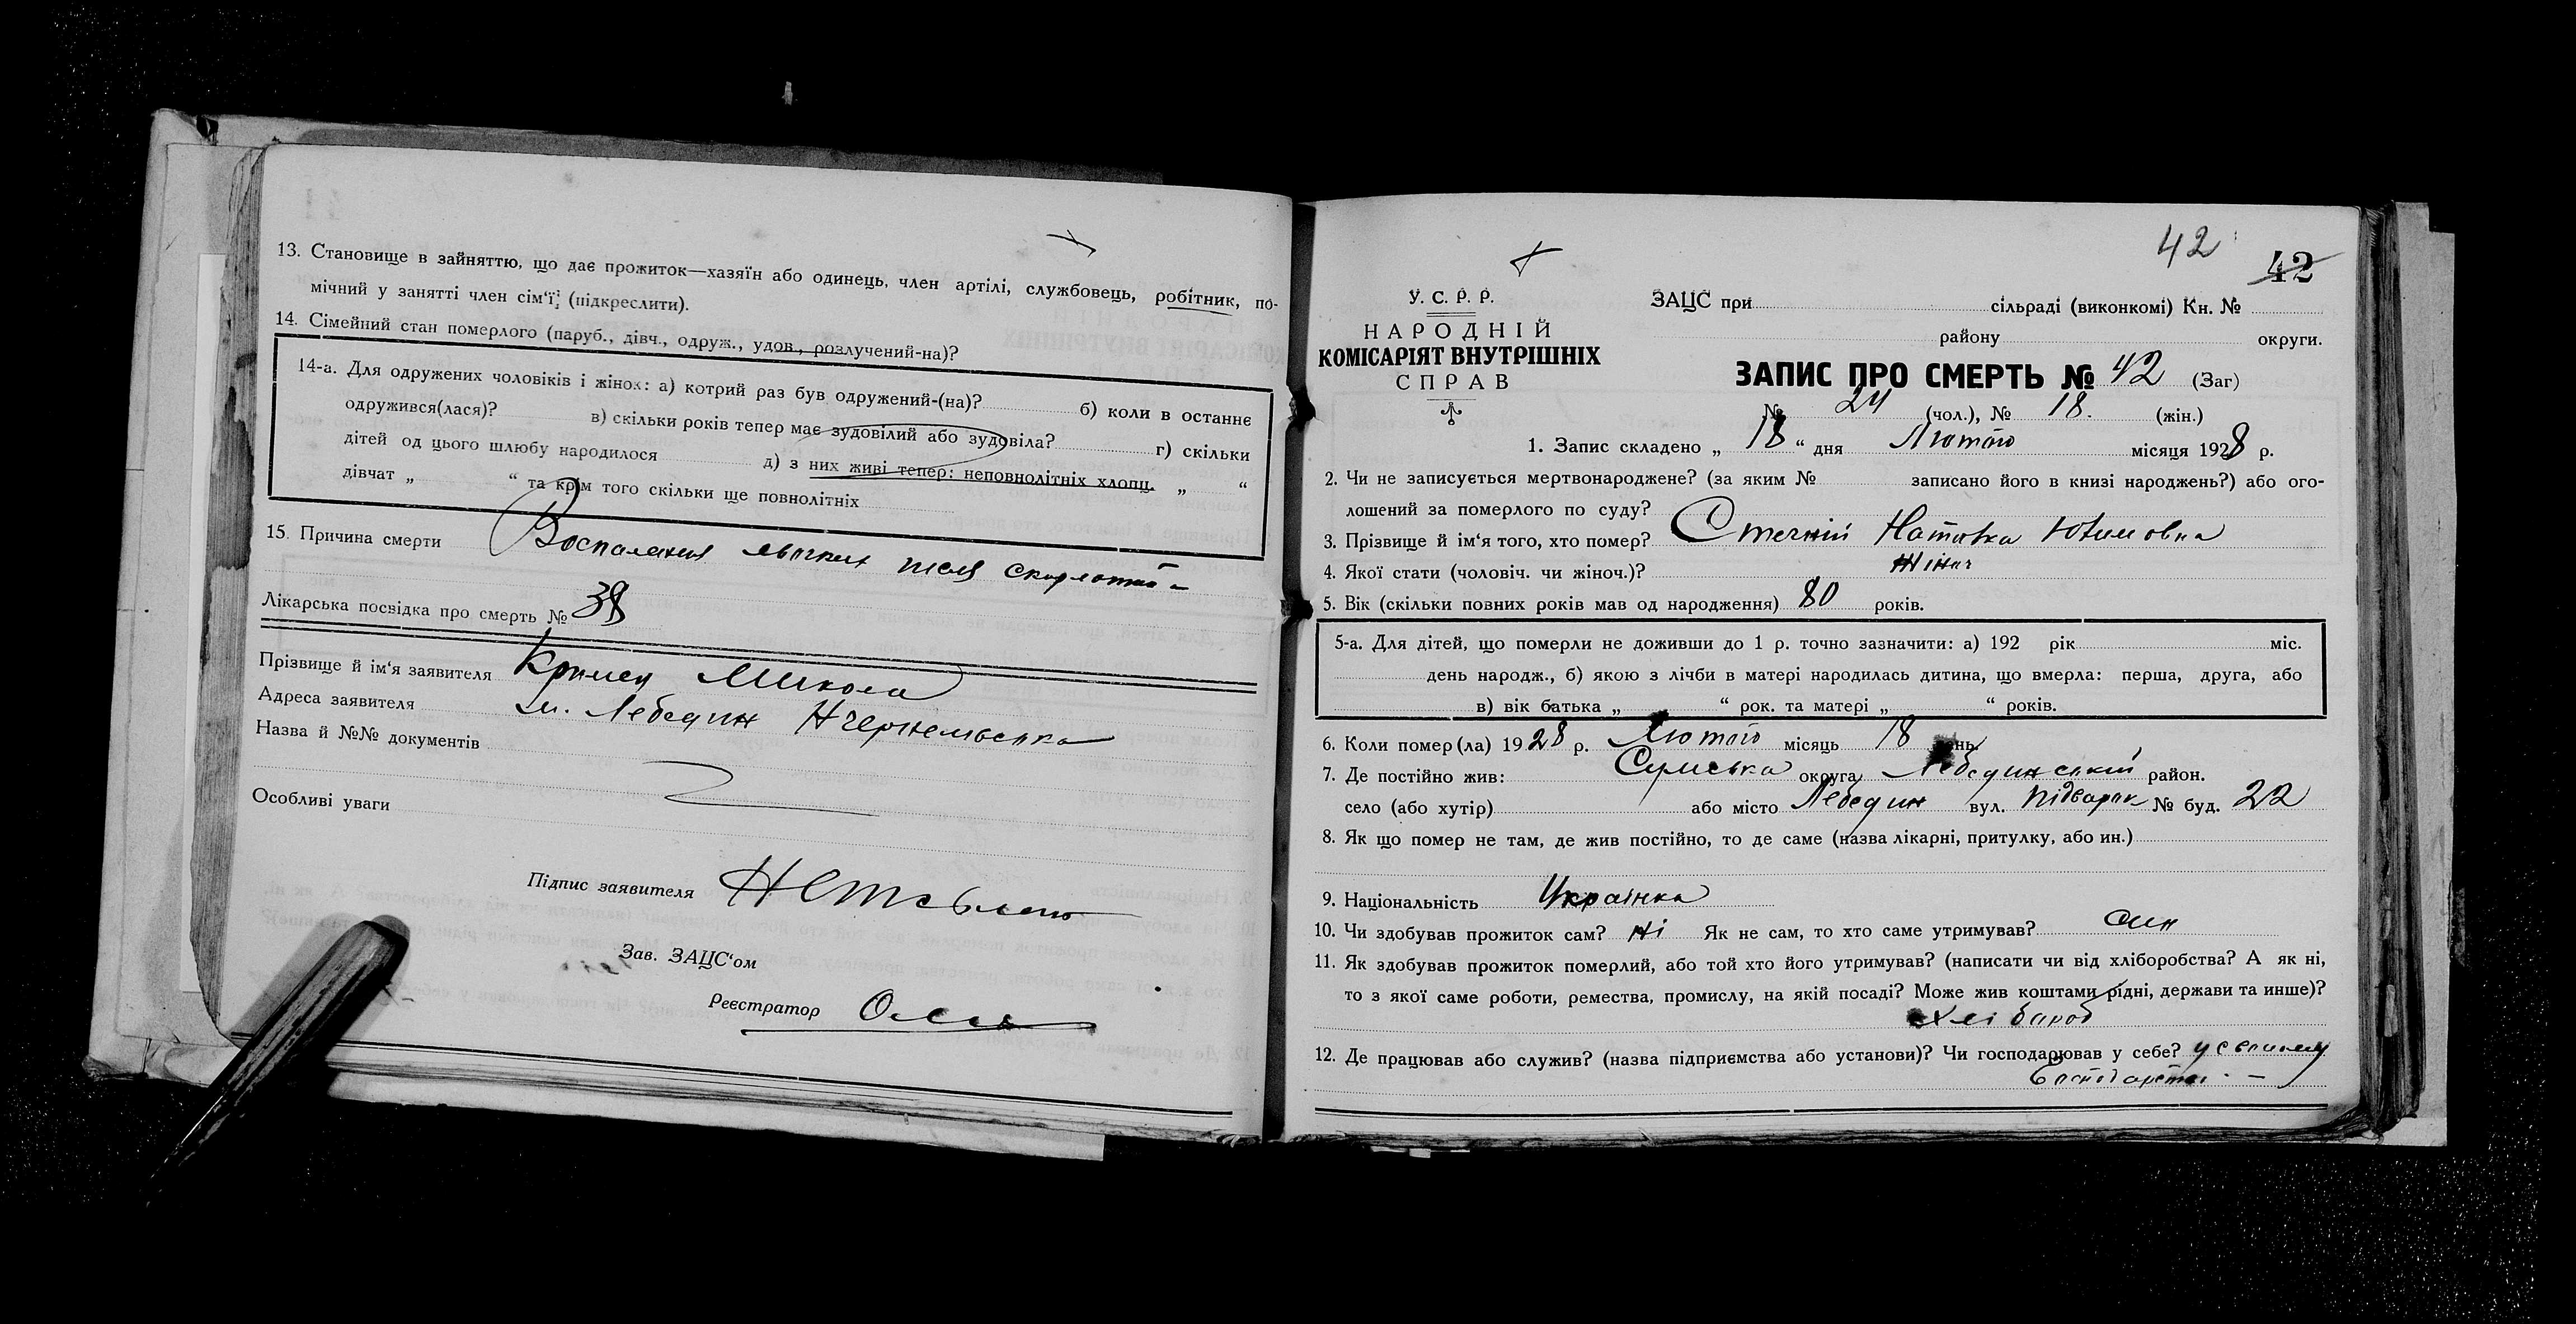 13. Становище в зайняттю, що дає прожиток—хазяїн або одинець, член артілі, службовець, робітник, по-
мічний у занятті член сім'ї; (підкреслити).
14. Сімейний стан померлого (паруб., дівч., одруж., удов., розлучений-на)?
14-а. Для одружених чоловіків і жінок: а) котрий раз був одружений-(на)? б) коли в останнє
одружився(лася)? в) скільки років тепер має зудовілий або зудовіла? г) скільки
дітей од цього шлюбу народилося д) з них живі тепер: неповнолітніх хлопц. „ “
дівчат „ “ та крім того скільки ще повнолітніх
15. Причина смерти Воспаления
Лікарська посвідка про смерть № 38
Прізвище й ім'я заявителя Микола
Адреса заявителя м. Лебедин
Назва й №№ документів
Особливі уваги
Підпис заявителя
Зав. ЗАЦС'ом
Реєстратор
42
42
У. С. Р. Р.
НАРОДНІЙ
КОМІСАРІЯТ ВНУТРІШНІХ
СПРАВ
ЗАЦС при сільраді (виконкомі) Кн. №
району округи.
ЗАПИС ПРО СМЕРТЬ № 42 (Заг)
№ 24 (чол.), № 18. (жін.)
1. Запис складено „ 18 “ дня Лютого місяця 1928 р.
2. Чи не записується мертвонароджене? (за яким № записано його в книзі народжень?) або ого-
лошений за померлого по суду?
3. Прізвище й ім'я того, хто помер?
4. Якої стати (чоловіч. чи жіноч.)? Жіноч
5. Вік (скільки повних років мав од народження) 80 років.
5-а. Для дітей, що померли не доживши до 1 р. точно зазначити: а) 192 рік міс.
день народж., б) якою з лічби в матері народилась дитина, що вмерла: перша, друга, або
в) вік батька „ “ рок. та матері „ “ років.
6. Коли помер(ла) 1928 р. Лютого місяць 18 день.
7. Де постійно жив: Сумська округа Лебединський район.
село (або хутір) або місто Лебедин вул. № буд. 22
8. Як що помер не там, де жив постійно, то де саме (назва лікарні, притулку, або ин.)
9. Національність Українка
10. Чи здобував прожиток сам? Ні Як не сам, то хто саме утримував? син
11. Як здобував прожиток померлий, або той хто його утримував? (написати чи від хліборобства? А як ні,
то з якої саме роботи, ремества, промислу, на якій посаді? Може жив коштами рідні, держави та инше)?
12. Де працював або служив? (назва підприємства або установи)? Чи господарював у себе?